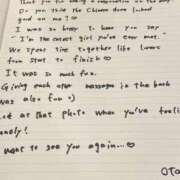 That you for being a
Do you think the Chinese dress looked
good on me? ♡
I was so happy to hear you say
"I'm the cutest girl you've ever met."
We spent time together like lovers
from start to finish ♡
It was so much fun.
Giving each other massages in the bath
was also fun
at that photo when you're feeling
lonely!
want to see you again... ♡